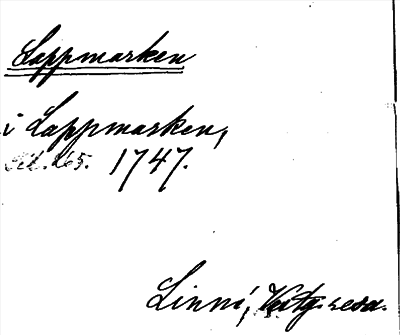 Lappmarken
i Lappmarken,
265. 1747.
Linné, Vestg. resa.